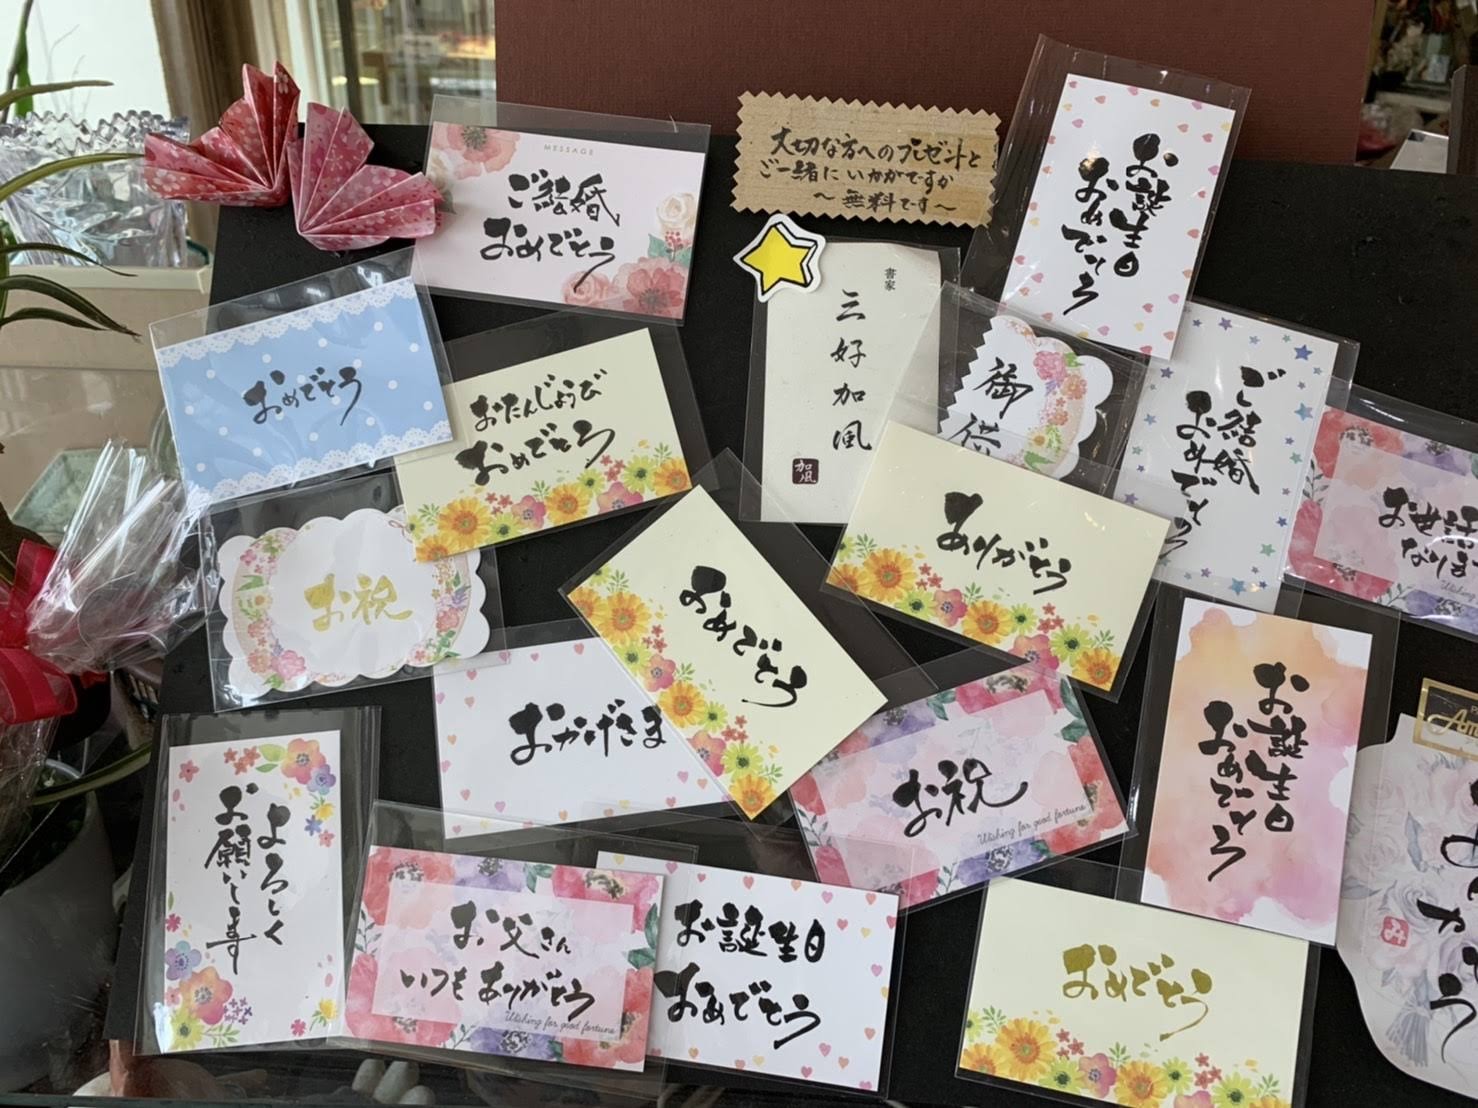 MESSAGE
ご結婚
おめでとう
大切な方へのプレゼントと
ご一緒にいかがですか
～無料です～
お誕生日
おめでとう
おめでとう
おたんじょうび
おめでとう
書家
三好加風
加風
御供
ご結婚
おめでとう
お世話
なりま
Wishing
お祝
おめでとう
ありがとう
おかげさま
お祝
Wishing for good fortune
お誕生日
おめでとう
よろしく
お願いします
お父さん
いつもありがとう
Wishing for good fortune
お誕生日
おめでとう
おめでとう
み